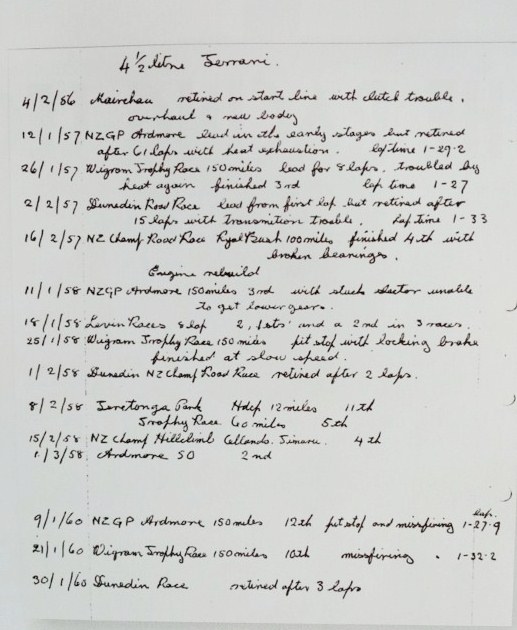 4 ½ litre Ferrari.
4/2/56 Mairehau retired on start line with clutch trouble.
overhaul & new body
12/1/57 NZGP Ardmore lead in the early stages but retired
after 61 laps with heat exhaustion. lap time 1-29.2
26/1/57 Wigram Trophy Race 150 miles lead for 8 laps, troubled by
heat again finished 3rd lap time 1-27
2/2/57 Dunedin Road Race lead from first lap but retired after
15 laps with transmition trouble. Lap time 1-33
16/2/57 NZ Champ Road Race Ryal Bush 100 miles finished 4th with
broken bearings.
Engine rebuild
11/1/58 NZGP Ardmore 150 miles 3rd with stuck selector unable
to get lower gears.
18/1/58 Levin Races 8 lap 2, 1sts' and a 2nd in 3 races.
25/1/58 Wigram Trophy Race 150 miles pit stop with locking brake
finished at slow speed.
1/2/58 Dunedin NZ Champ Road Race retired after 2 laps.
8/2/58 Teretonga Park Hdcp 12 miles 11th
Trophy Race 60 miles 5th
15/2/58 NZ Champ Hillclimb Timaru. 4th
1/3/58 Ardmore 50 2nd
Lap.
9/1/60 NZGP Ardmore 150 miles 12th pit stop and missfiring 1-27.9
21/1/60 Wigram Trophy Race 150 miles 10th missfiring . 1-32.2
30/1/60 Dunedin Race retired after 3 laps